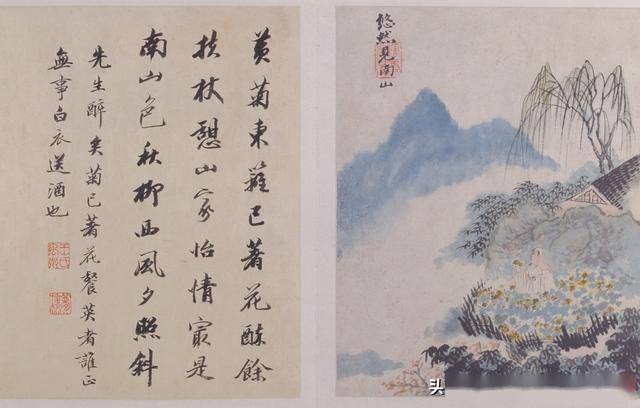 悠然見南山
黃菊東籬已著花醉餘
扶杖憩山家怡情㝡是
南山色秋柳西風夕照斜
先生醉矣菊已著花餐英者誰正
無事白衣送酒也
头